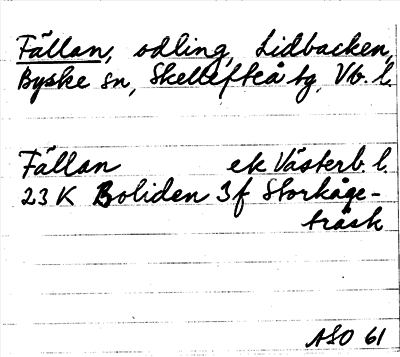 Fällan, odling, Lidbacken,
Byske sn, Skellefteå tg, Vb. l.
Fällan ek Västerb. l.
23 K Boliden 3f Storkåge-
träsk
ASO 61